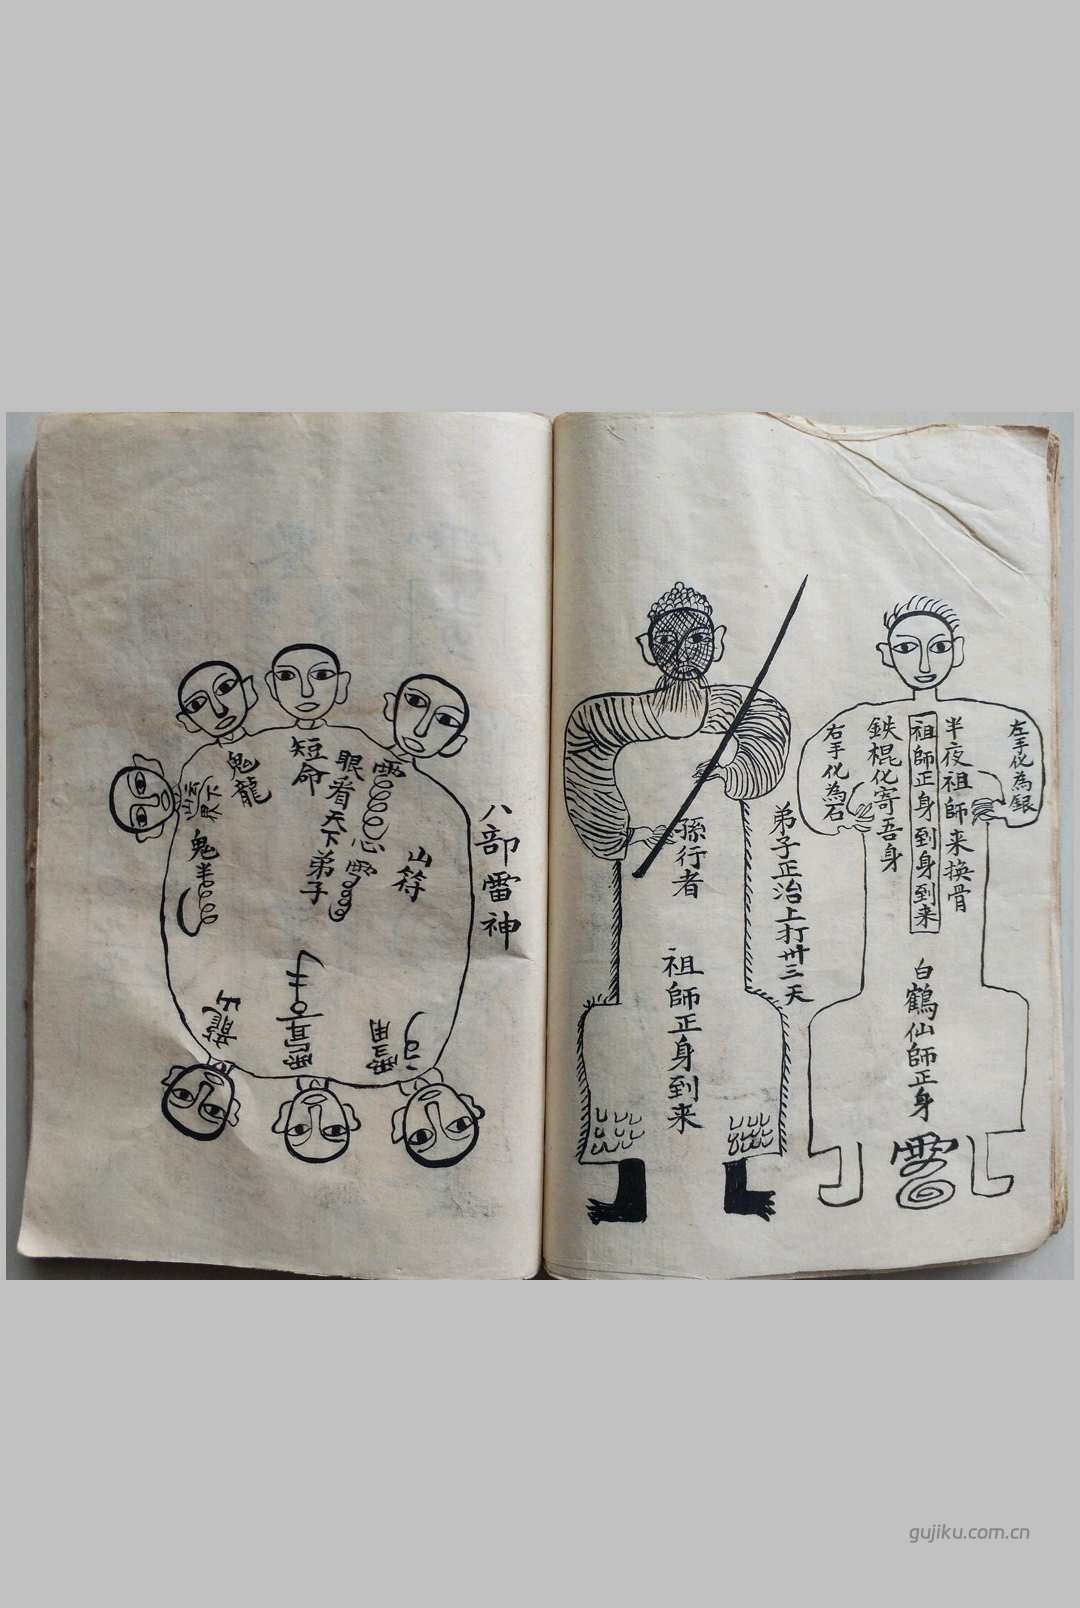 左手化為銀
半夜祖師来換骨
祖師正身到身到来
鉄棍化寄吾身
右手化為石
白鶴仙師正身
弟子正治上打卅三天
孫行者
祖師正身到来
八部雷神
山符
眼看天下弟子
短命
鬼龍
gujiku.com.cn